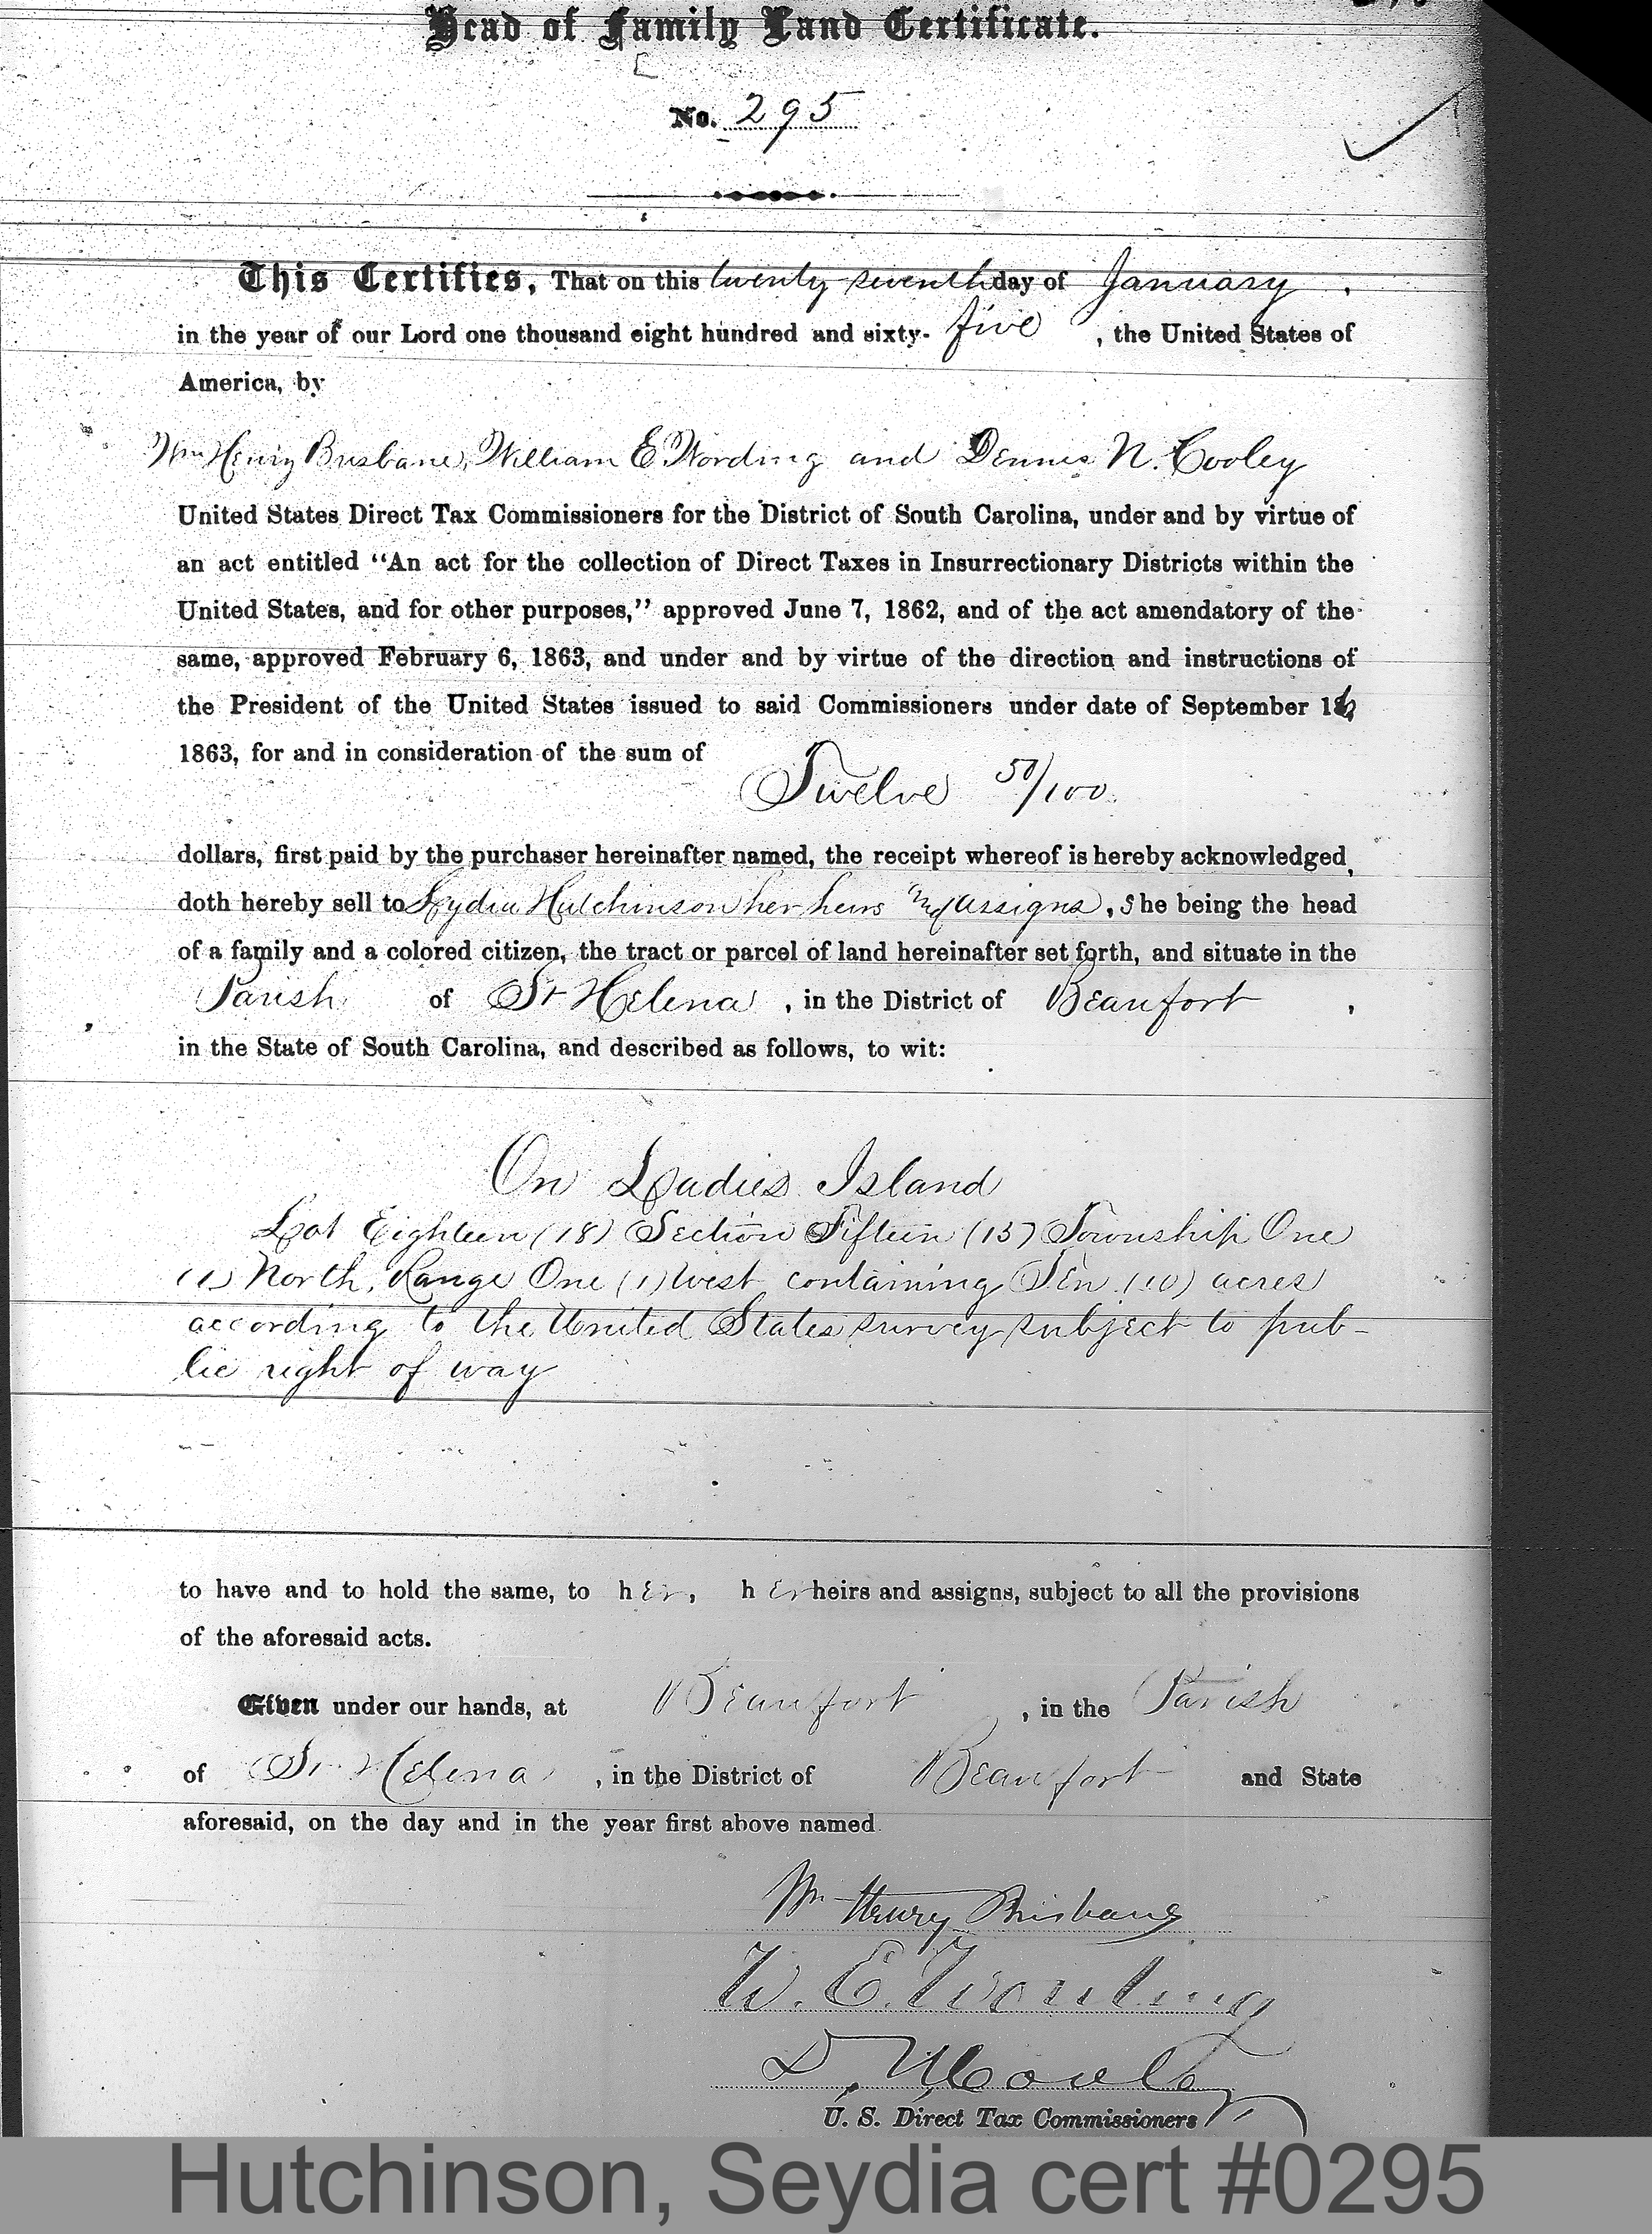 Head of Family Land Certificate.
No. 295
This Certifies, That on this twenty seventh day of January,
in the year of our Lord one thousand eight hundred and sixty-five, the United States of
America, by
Wm Henry Brisbane, William E. Wording and Dennis N. Cooley
United States Direct Tax Commissioners for the District of South Carolina, under and by virtue of
an act entitled "An act for the collection of Direct Taxes in Insurrectionary Districts within the
United States, and for other purposes," approved June 7, 1862, and of the act amendatory of the
same, approved February 6, 1863, and under and by virtue of the direction and instructions of
the President of the United States issued to said Commissioners under date of September 16
1863, for and in consideration of the sum of
Twelve 50/100
dollars, first paid by the purchaser hereinafter named, the receipt whereof is hereby acknowledged,
doth hereby sell to Lydia Hutchinson her heirs and assigns, She being the head
of a family and a colored citizen, the tract or parcel of land hereinafter set forth, and situate in the
Parish of St Helena, in the District of Beaufort,
in the State of South Carolina, and described as follows, to wit:
On Ladies Island
Lot Eighteen (18) Section Fifteen (15) Township One
(1) North, Range One (1) West containing Ten (10) acres
according to the United States survey subject to pub-
lic right of way
to have and to hold the same, to her, her heirs and assigns, subject to all the provisions
of the aforesaid acts.
Given under our hands, at Beaufort, in the Parish
of St Helena, in the District of Beaufort and State
aforesaid, on the day and in the year first above named.
Wm Henry Brisbane
W. E. Wording
D. N. Cooley
U. S. Direct Tax Commissioners
Hutchinson, Seydia cert #0295